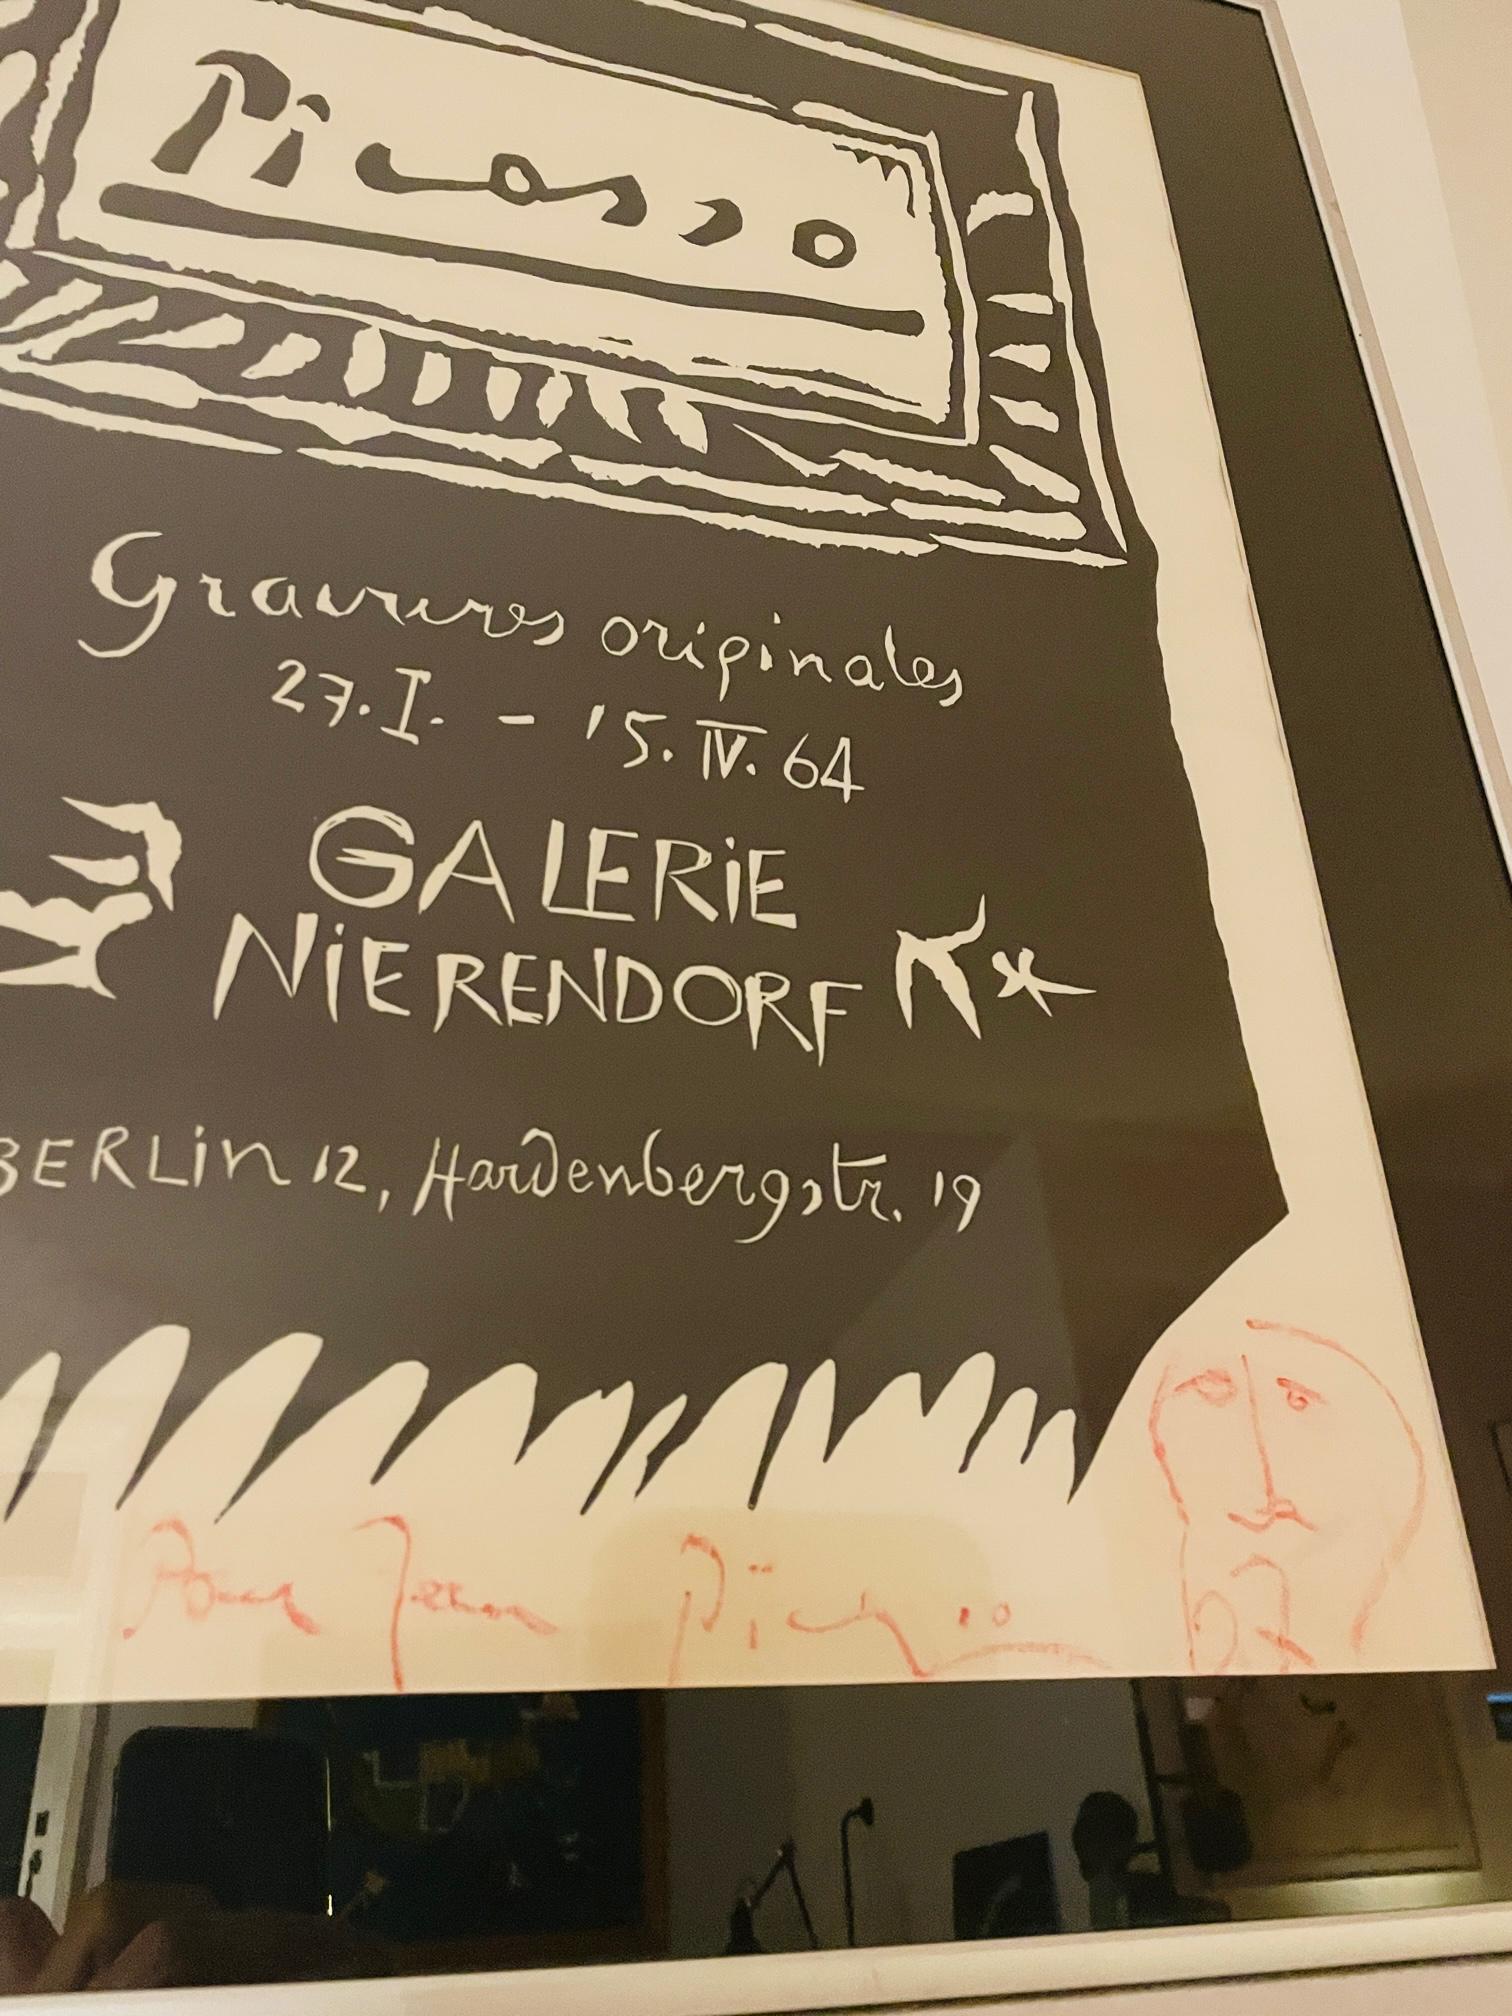 Picasso
Gravures originales
27.I. - 15.IV.64
GALERIE
NIERENDORF
BERLIN 12, Hardenbergstr. 19
Pour Jean Picasso